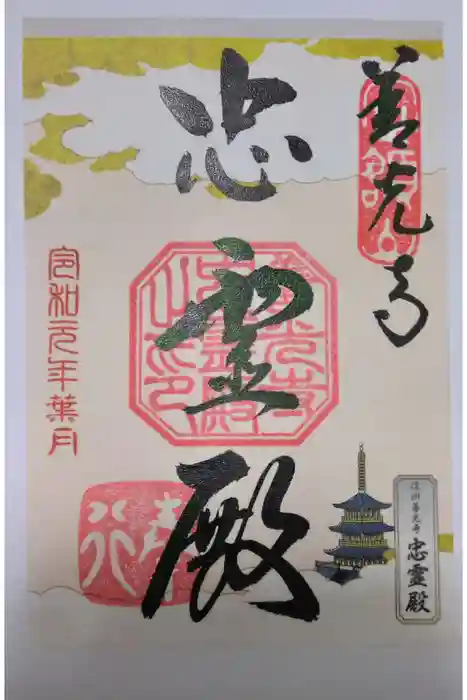 善光寺
忠
霊
殿
令和元年葉月
信州善光寺
忠霊殿